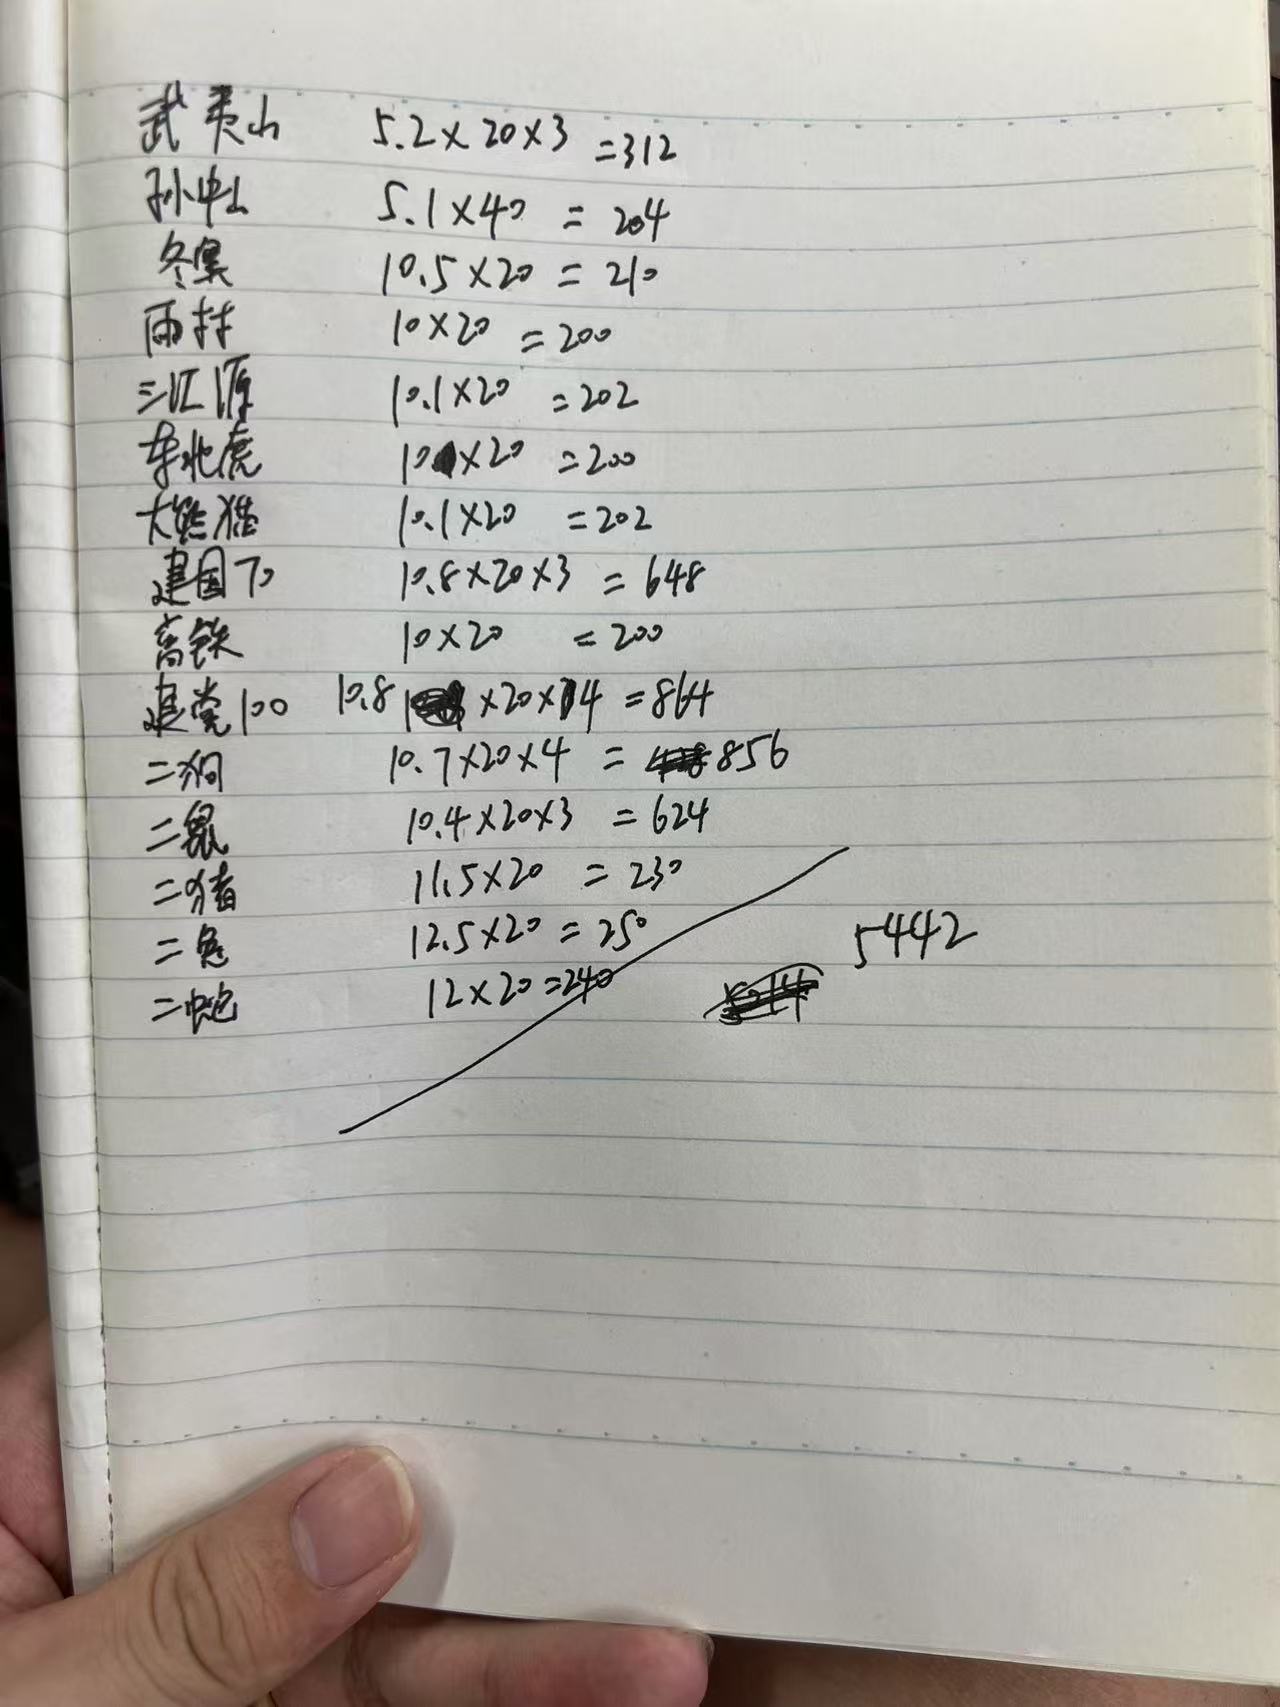 武夷山 5.2×20×3 =312
孙中山 5.1×40 = 204
冬奥 10.5×20 = 210
雨林 10×20 =200
三江源 10.1×20 =202
东北虎 10×20 =200
大熊猫 10.1×20 =202
建国70 10.8×20×3 = 648
高铁 10×20 =200
建党100 10.8 ×20×4 =864
二狗 10.7×20×4 = 856
二鼠 10.4×20×3 = 624
二猪 11.5×20 = 230
二兔 12.5×20 = 250
二蛇 12×20=240
5442